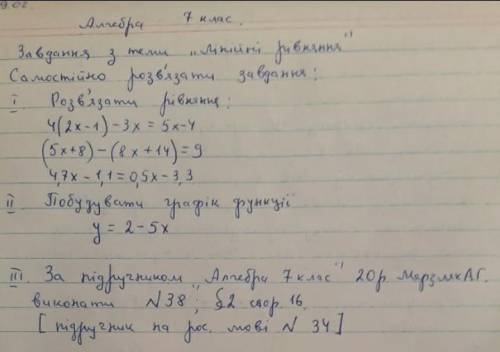 9.02.
Алгебра 7 клас.
Завдання з теми "Лінійні рівняння"
Самостійно розв'язати завдання:
I Розв'язати рівняння:
4(2x-1)-3x=5x-4
(5x+8)-(8x+14)=9
4,7x-1,1=0,5x-3,3
II Побудувати графік функції
y=2-5x
III За підручником "Алгебра 7 клас" 20р. Мерзляк А.Г.
виконати №38; §2 стор. 16.
[підручник на рос. мові №34]